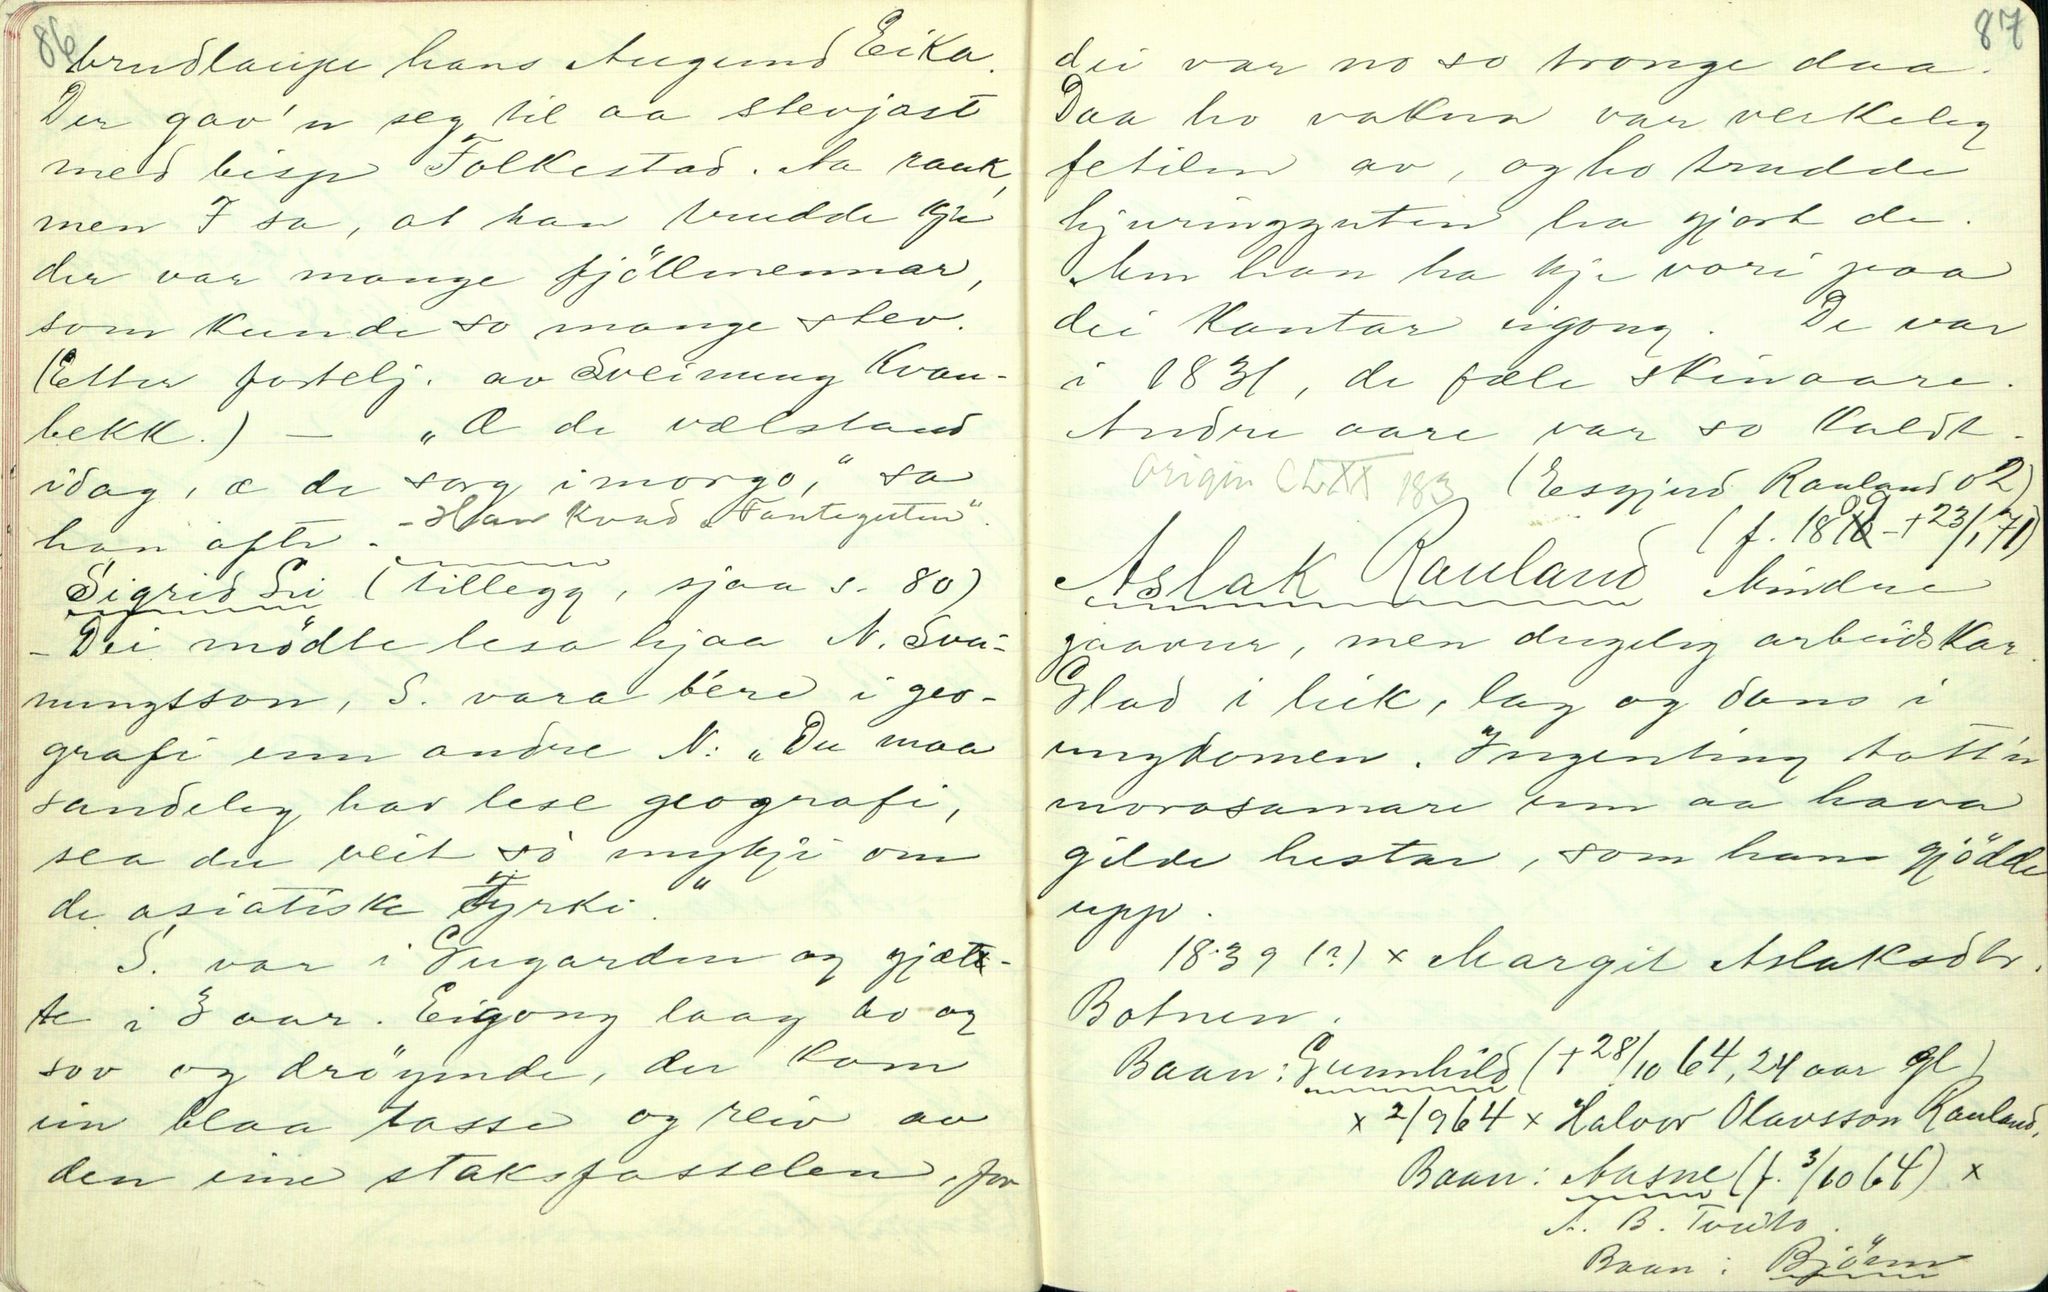 86
brudlaupe hans Augund Eika.
Der gav'n seg til aa stevjast
med bisp Folkestad. Aa rauk,
men F sa, at han trudde kje
der var mange fjöllmennar,
som kunde so mange stev.
(Etter fortelj. av Sveinung Kvan-
bekk.) — „Æ de velstand
idag, æ de sorg i morgo," sa
han ofte. - Han kvad „Fanteguten".
Sigrid Li (tillegg, sjaa s. 80)
- Dei mödte lesa hjaa N. Svei-
nungsson, S. vara bere i geo-
grafi enn andre N: „Du maa
sandeleg hav lese geografi,
sea du veit so mykji om
de asiatiske Tyrki."
S. var i Gugarden og gjæt-
te i 3 aar. Eigong laag ho og
sov og dröymde, der kom
ein blaa tasse og reiv av
den eine staksfasselen, for
87
dei var no so tronge daa.
Daa ho vakna var verkeleg
fetilen av, og ho trudde
hjuringguten ha gjort de.
Men han ha kje vori paa
dei kantar eigong. De var
i 1831, de fæle skinaare.
Andre aare var so kaldt.
Origin CLXX 183 (Esgjerd Rauland 02)
(f. 1809 - +23/1, 71)
Aslak Rauland Mindre
gaavur, men dugeleg arbeidskar.
Glad i leik, lag og dans i
ungdomen. Ingenting tott'n
morosamare enn aa hava
gilde hestar, som han gjödde
upp.
1839 (?) × Margit Aslaksdtr.
Botnen.
Baan: Gunnhild (+28/10 64, 24 aar gl)
× 2/9 64 × Halvor Olavsson Rauland.
Baan: Aasne (f. 3/10 64) ×
A. B. Tveito.
Baan: Björn